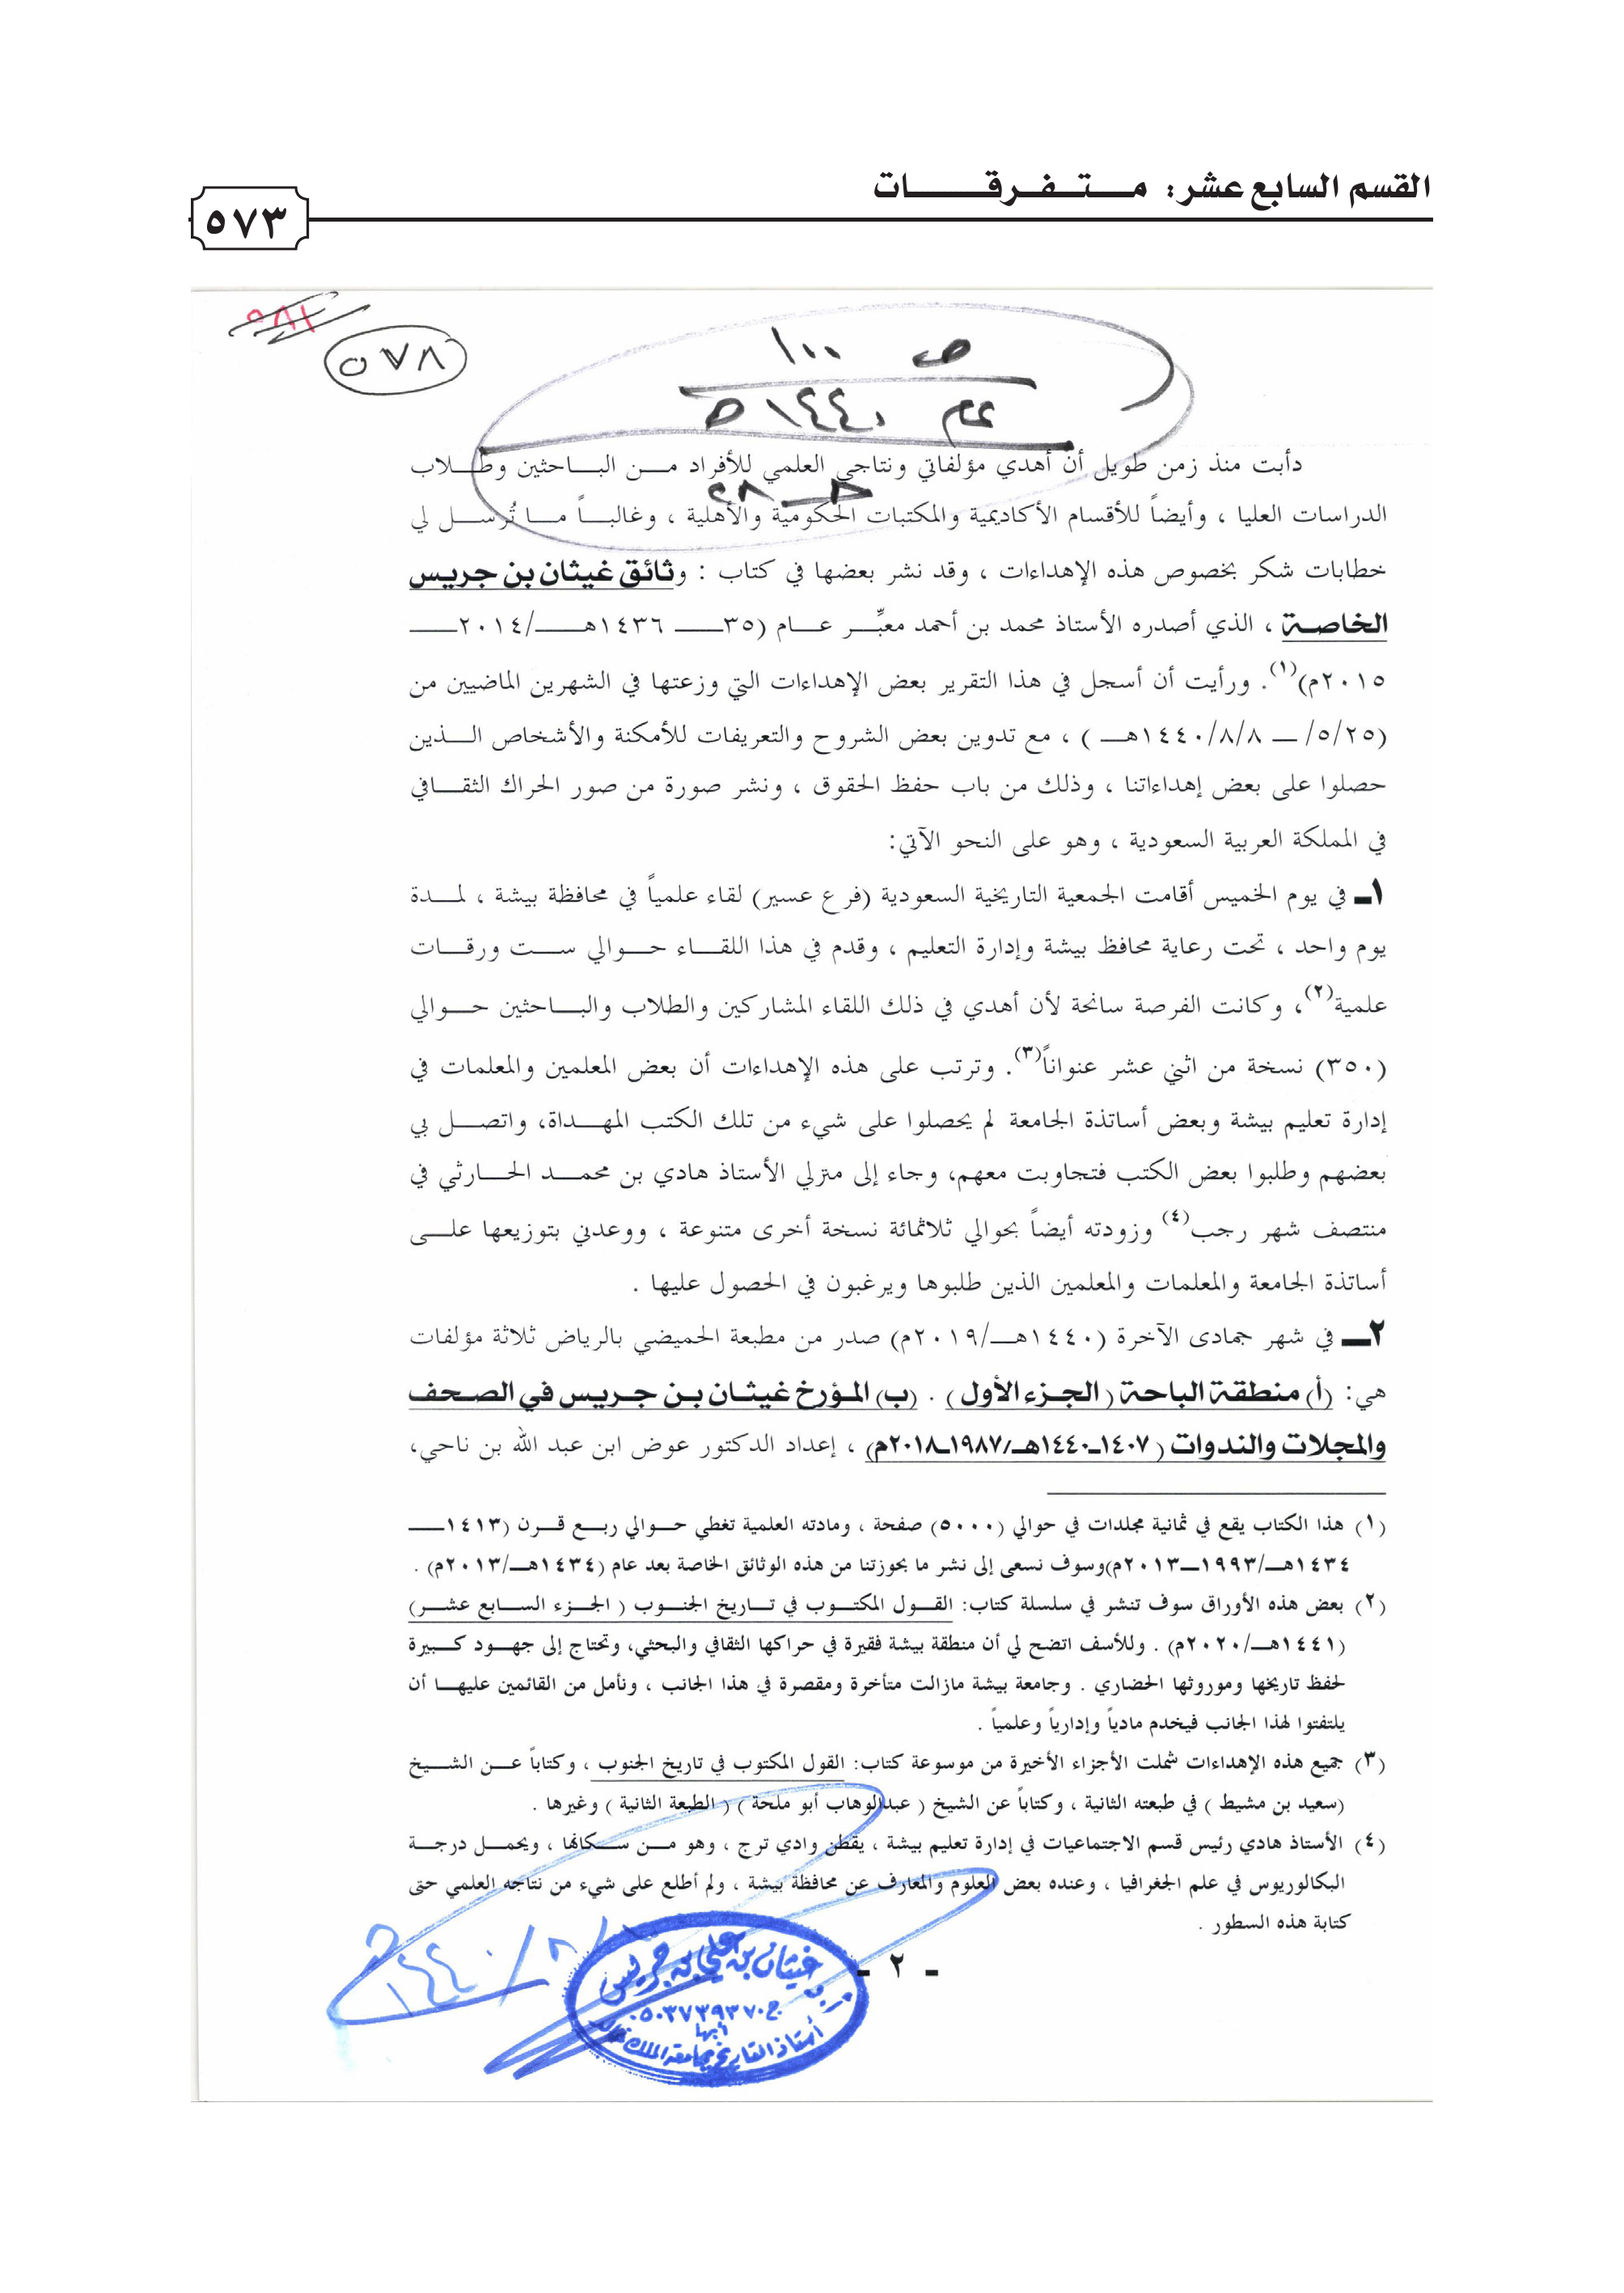 القسم السابع عشر: متفرقات
٥٧٣
٥٧٨
ص ١٠٠
عام ١٤٤٠هـ
دأبت منذ زمن طويل أن أهدي مؤلفاتي ونتاجي العلمي للأفراد من الباحثين وطلاب
الدراسات العليا ، وأيضاً للأقسام الأكاديمية والمكتبات الحكومية والأهلية ، وغالباً ما تُرسل لي
خطابات شكر بخصوص هذه الإهداءات ، وقد نشر بعضها في كتاب : وثائق غيثان بن جريس
الخاصة ، الذي أصدره الأستاذ محمد بن أحمد معبِّر عام (٣٥ــ ١٤٣٦هـ/٢٠١٤ــ
٢٠١٥م)(١). ورأيت أن أسجل في هذا التقرير بعض الإهداءات التي وزعتها في الشهرين الماضيين من
(٥/٢٥/ ــ ١٤٤٠/٨/٨هـ ) ، مع تدوين بعض الشروح والتعريفات للأمكنة والأشخاص الذين
حصلوا على بعض إهداءاتنا ، وذلك من باب حفظ الحقوق ، ونشر صورة من صور الحراك الثقافي
في المملكة العربية السعودية ، وهو على النحو الآتي:
١ــ في يوم الخميس أقامت الجمعية التاريخية السعودية (فرع عسير) لقاء علمياً في محافظة بيشة ، لمدة
يوم واحد ، تحت رعاية محافظ بيشة وإدارة التعليم ، وقدم في هذا اللقاء حوالي ست ورقات
علمية(٢)، وكانت الفرصة سانحة لأن أهدي في ذلك اللقاء المشاركين والطلاب والباحثين حوالي
(٣٥٠) نسخة من اثني عشر عنواناً(٣). وترتب على هذه الإهداءات أن بعض المعلمين والمعلمات في
إدارة تعليم بيشة وبعض أساتذة الجامعة لم يحصلوا على شيء من تلك الكتب المهداة، واتصل بي
بعضهم وطلبوا بعض الكتب فتجاوبت معهم، وجاء إلى منزلي الأستاذ هادي بن محمد الحارثي في
منتصف شهر رجب(٤) وزودته أيضاً بحوالي ثلاثمائة نسخة أخرى متنوعة ، ووعدني بتوزيعها على
أساتذة الجامعة والمعلمات والمعلمين الذين طلبوها ويرغبون في الحصول عليها .
٢ــ في شهر جمادى الآخرة (١٤٤٠هـ/٢٠١٩م) صدر من مطبعة الحميضي بالرياض ثلاثة مؤلفات
هي: (أ) منطقة الباحة ( الجزء الأول ) . (ب) المؤرخ غيثان بن جريس في الصحف
والمجلات والندوات ( ١٤٠٧ـ١٤٤٠هـ/١٩٨٧ـ٢٠١٨م) ، إعداد الدكتور عوض ابن عبد الله بن ناحي،
(١) هذا الكتاب يقع في ثمانية مجلدات في حوالي (٥٠٠٠) صفحة ، ومادته العلمية تغطي حوالي ربع قرن (١٤١٣ــ
١٤٣٤هـ/١٩٩٣ــ٢٠١٣م)وسوف نسعى إلى نشر ما بحوزتنا من هذه الوثائق الخاصة بعد عام (١٤٣٤هـ/٢٠١٣م) .
(٢) بعض هذه الأوراق سوف تنشر في سلسلة كتاب: القول المكتوب في تاريخ الجنوب ( الجزء السابع عشر)
(١٤٤١هـ/٢٠٢٠م) . وللأسف اتضح لي أن منطقة بيشة فقيرة في حراكها الثقافي والبحثي، وتحتاج إلى جهود كبيرة
لحفظ تاريخها وموروثها الحضاري . وجامعة بيشة مازالت متأخرة ومقصرة في هذا الجانب ، ونأمل من القائمين عليها أن
يلتفتوا لهذا الجانب فيخدم مادياً وإدارياً وعلمياً .
(٣) جميع هذه الإهداءات شملت الأجزاء الأخيرة من موسوعة كتاب: القول المكتوب في تاريخ الجنوب ، وكتاباً عن الشيخ
(سعيد بن مشيط ) في طبعته الثانية ، وكتاباً عن الشيخ ( عبدالوهاب أبو ملحة ) ( الطبعة الثانية ) وغيرها .
(٤) الأستاذ هادي رئيس قسم الاجتماعيات في إدارة تعليم بيشة ، يقطن وادي ترج ، وهو من سكانها ، ويحمل درجة
البكالوريوس في علم الجغرافيا ، وعنده بعض العلوم والمعارف عن محافظة بيشة ، ولم أطلع على شيء من نتاجه العلمي حتى
كتابة هذه السطور .
- ٢ -
غيثان بن علي بن جريس
ج ٠٥٠٣٧٣٩٣٧٠
أبها
أستاذ التاريخ بجامعة الملك خالد